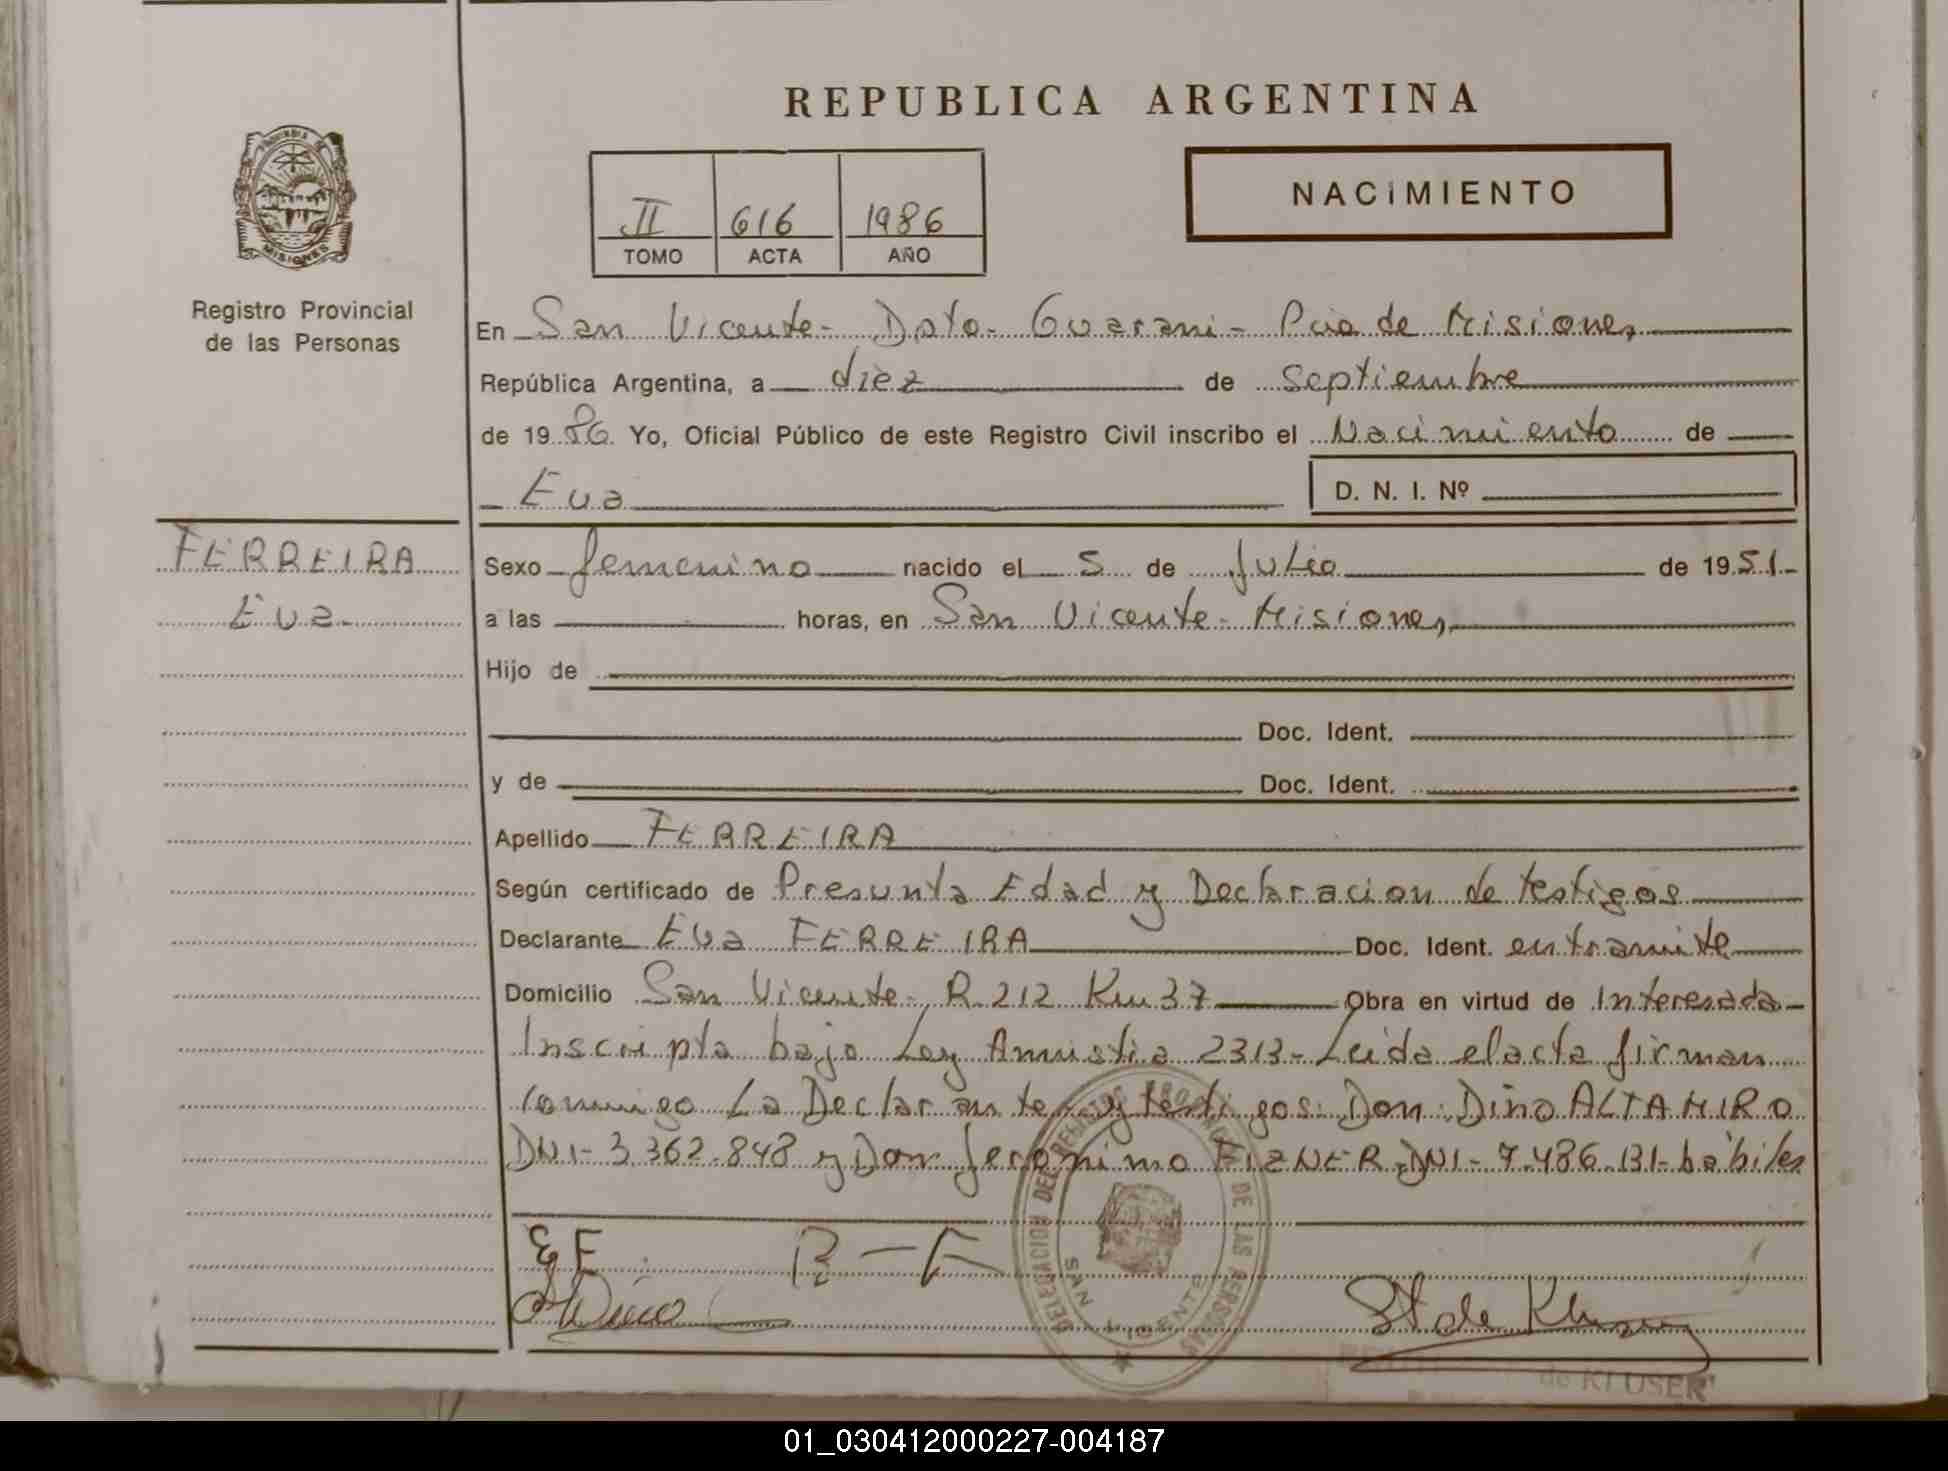 REPUBLICA ARGENTINA
PROVINCIA DE
MISIONES
Registro Provincial
de las Personas
II 616 1986
TOMO ACTA AÑO
NACIMIENTO
En San Vicente- Dpto- Guarani- Pcia de Misiones
República Argentina, a diez de Septiembre
de 1986 Yo, Oficial Público de este Registro Civil inscribo el Nacimiento de
Eva D. N. I. Nº
FERREIRA
Eva-
Sexo femenino nacido el 5 de Julio de 1951-
a las horas, en San Vicente- Misiones
Hijo de
Doc. Ident.
y de Doc. Ident.
Apellido FERREIRA
Según certificado de Presunta Edad y Declaracion de testigos
Declarante Eva FERREIRA Doc. Ident. en tramite
Domicilio San Vicente-, R.212 Km 37 Obra en virtud de Interesada-
Inscripta bajo Ley Amnistia 2313- Leida el acta firman
conmigo La Declarante y testigos: Don: Dino ALTAMIRO
DNI- 3.362.848 y Don Jeronimo FIZNER, DNI- 7.486.131- hábiles
E F B-F
Dino
St de Kluser
DELEGACION DEL REGISTRO PROVINCIAL DE LAS PERSONAS
SAN VICENTE
de KLUSER
01_030412000227-004187